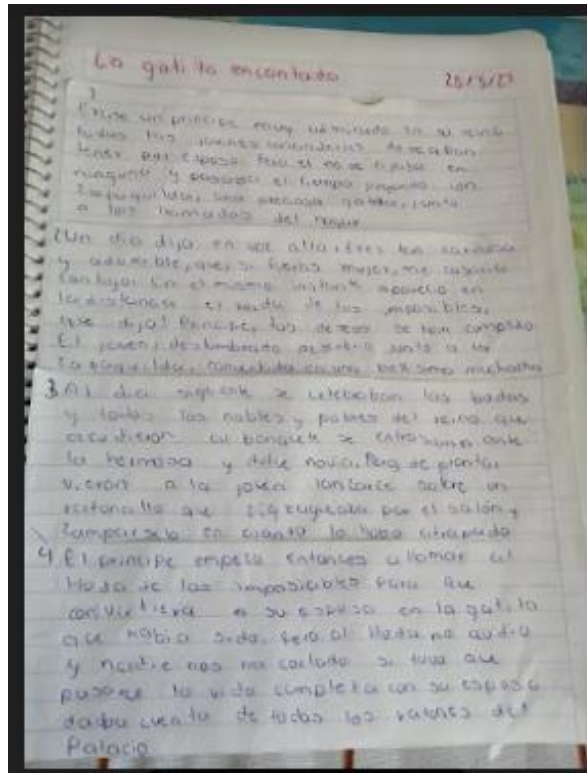 La gatita encantada 
1
un principe muy admirado en su reino
todas las jovenes deseaban
tener por esposo. Pero el no se fijaba en
ninguna y pasaba el tiempo jugando con
una gatita, junto
a las llamadas del
2 Un dia dijo en voz alta: eres tan cariñosa
y adorable, que, si fueras mujer, me casaria
contigo. En el mismo instante aparecio en
la estancia el Hada de los imposibles,
que dijo: Principe, tus deseos se han cumplido
El joven, deslumbrado junto a
convertida en una muchacha
3 Al dia siguiente se celebraban las bodas
y todos los nobles y pobres del reino que
acudieron al banquete se ante
la hermosa y dulce novia. Pero de pronto,
vieron a la joven lanzarse sobre un
ratoncillo que por el salón y
zamparselo en cuanto lo hubo atrapado
4 El principe empezo entonces a llamar al
Hada de los para que
convirtiera a su esposa en la gatita
que habia sido. Pero el Hada no
y nadie nos ha contado si tuvo que
pasarse la vida completa con su esposa
daba cuenta de todos los ratones del
Palacio